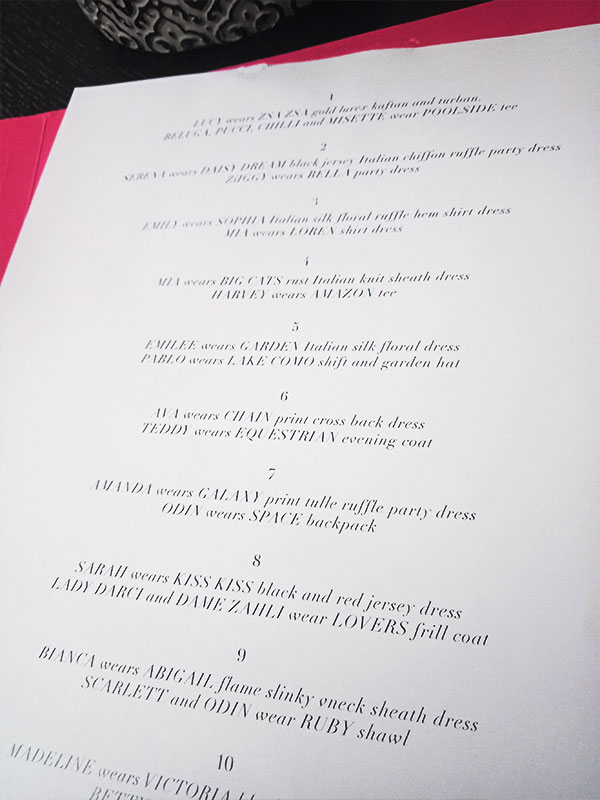 1
LUCY wears ZSA ZSA gold lurex kaftan and turban,
BELUGA, PUCCI, CHILLI and MISETTE wear POOLSIDE tee
2
SERENA wears DAISY DREAM black jersey Italian chiffon ruffle party dress
ZiGGY wears BELLA party dress
3
EMILY wears SOPHIA Italian silk floral ruffle hem shirt dress
MIA wears LOREN shirt dress
4
MIA wears BIG CATS rust Italian knit sheath dress
HARVEY wears AMAZON tee
5
EMILEE wears GARDEN Italian silk floral dress
PABLO wears LAKE COMO shift and garden hat
6
AVA wears CHAIN print cross back dress
TEDDY wears EQUESTRIAN evening coat
7
AMANDA wears GALAXY print tulle ruffle party dress
ODIN wears SPACE backpack
8
SARAH wears KISS KISS black and red jersey dress
LADY DARCI and DAME ZAHLI wear LOVERS frill coat
9
BIANCA wears ABIGAIL flame slinky vneck sheath dress
SCARLETT and ODIN wear RUBY shawl
10
MADELINE wears VICTORIA